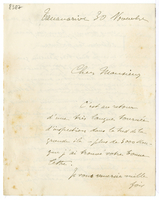 Tananarive 30 Novembre
Cher Monsieur,
C'est au retour
d'une très longue tournée
d'inspection dans le
grande île - plus de
que j'ai trouvé votre bonne
lettre.
Je vous remercie mille
fois